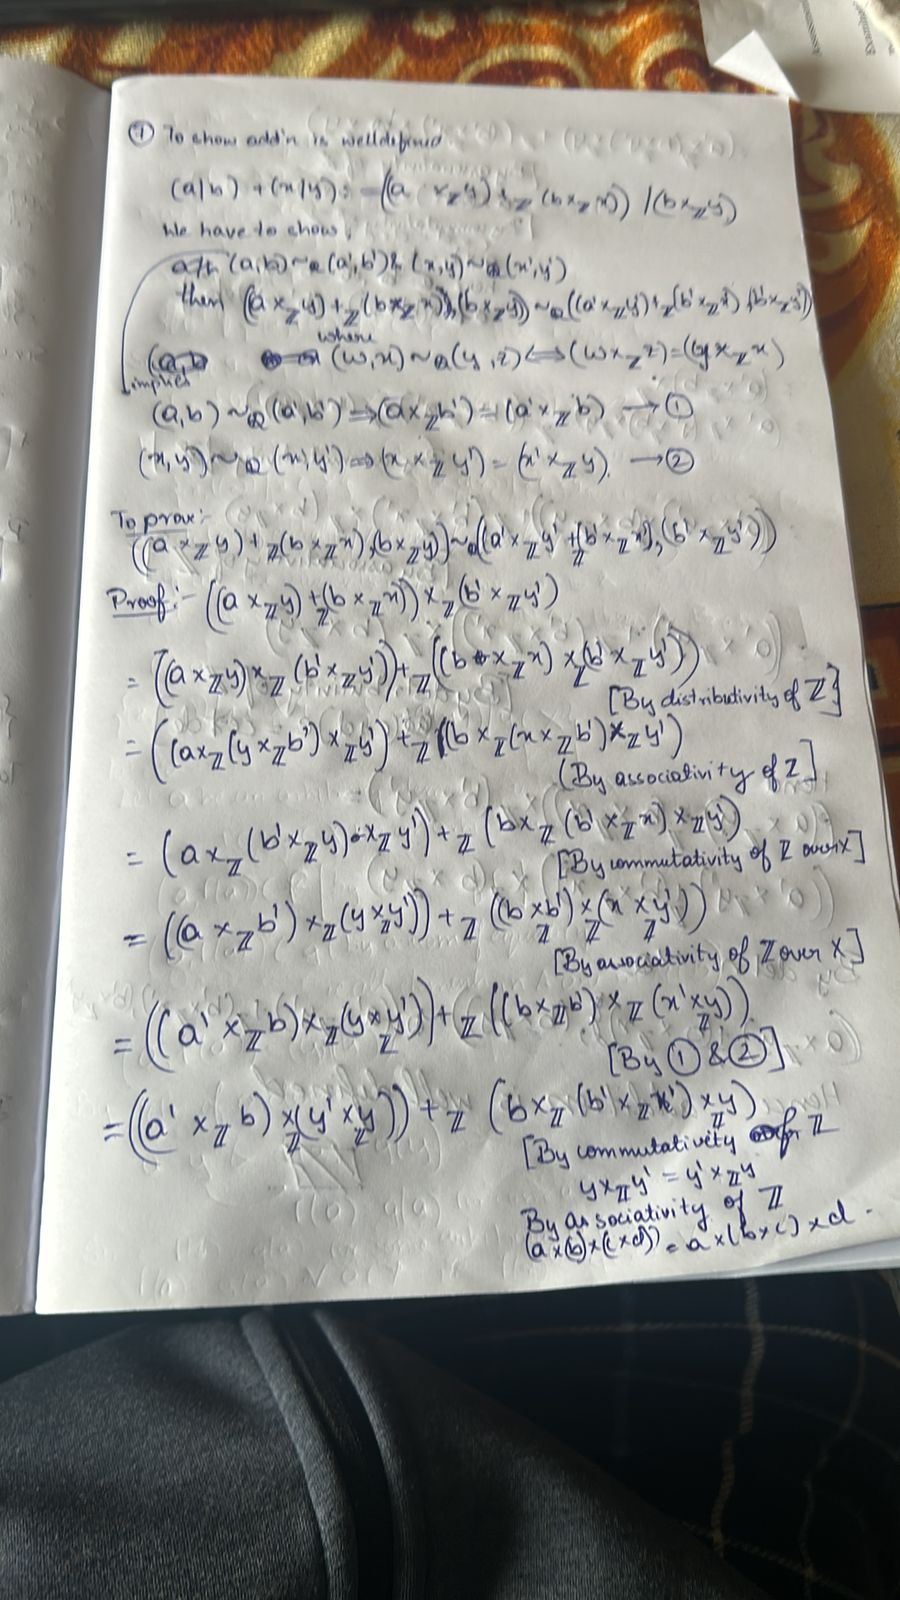 ① To show add'n is welldefined
(a/b) + (x/y) := ((a ×ℤ y) +ℤ (b ×ℤ x)) / (b ×ℤ y)
We have to show,
(a,b) ~ℚ (a',b') & (x,y) ~ℚ (x',y')
then ((a ×ℤ y) +ℤ (b ×ℤ x)), (b ×ℤ y)) ~ℚ ((a' ×ℤ y') +ℤ (b' ×ℤ x'), (b' ×ℤ y'))
where
(w,x) ~ℚ (y,z) ⟺ (w ×ℤ z) = (y ×ℤ x)
implies
(a,b) ~ℚ (a',b') ⇒ (a ×ℤ b') = (a' ×ℤ b) → ①
(x,y) ~ℚ (x',y') ⇒ (x ×ℤ y') = (x' ×ℤ y). → ②
To prove:-
((a ×ℤ y) +ℤ (b ×ℤ x), (b ×ℤ y)) ~ℚ ((a' ×ℤ y' +ℤ (b' ×ℤ x'), (b' ×ℤ y'))
Proof:- ((a ×ℤ y) +ℤ (b ×ℤ x)) ×ℤ (b' ×ℤ y')
= ((a ×ℤ y) ×ℤ (b' ×ℤ y')) +ℤ ((b ×ℤ x) ×ℤ (b' ×ℤ y'))
[By distributivity of ℤ]
= ((a ×ℤ (y ×ℤ b') ×ℤ y') +ℤ ((b ×ℤ (x ×ℤ b') ×ℤ y')
(By associativity of ℤ]
= (a ×ℤ (b' ×ℤ y) ×ℤ y') +ℤ (b ×ℤ (b' ×ℤ x) ×ℤ y')
[By commutativity of ℤ over ×]
= ((a ×ℤ b') ×ℤ (y ×ℤ y')) +ℤ ((b ×ℤ b') ×ℤ (x ×ℤ y'))
[By associativity of ℤ over ×]
= ((a' ×ℤ b) ×ℤ (y ×ℤ y')) +ℤ ((b ×ℤ b') ×ℤ (x' ×ℤ y))
[By ① & ②]
= ((a' ×ℤ b) ×ℤ (y' ×ℤ y)) +ℤ (b ×ℤ (b' ×ℤ x') ×ℤ y)
[By commutativity of ℤ
y ×ℤ y' = y' ×ℤ y
By associativity of ℤ
(a × b) × (c × d) = a × (b × c) × d.